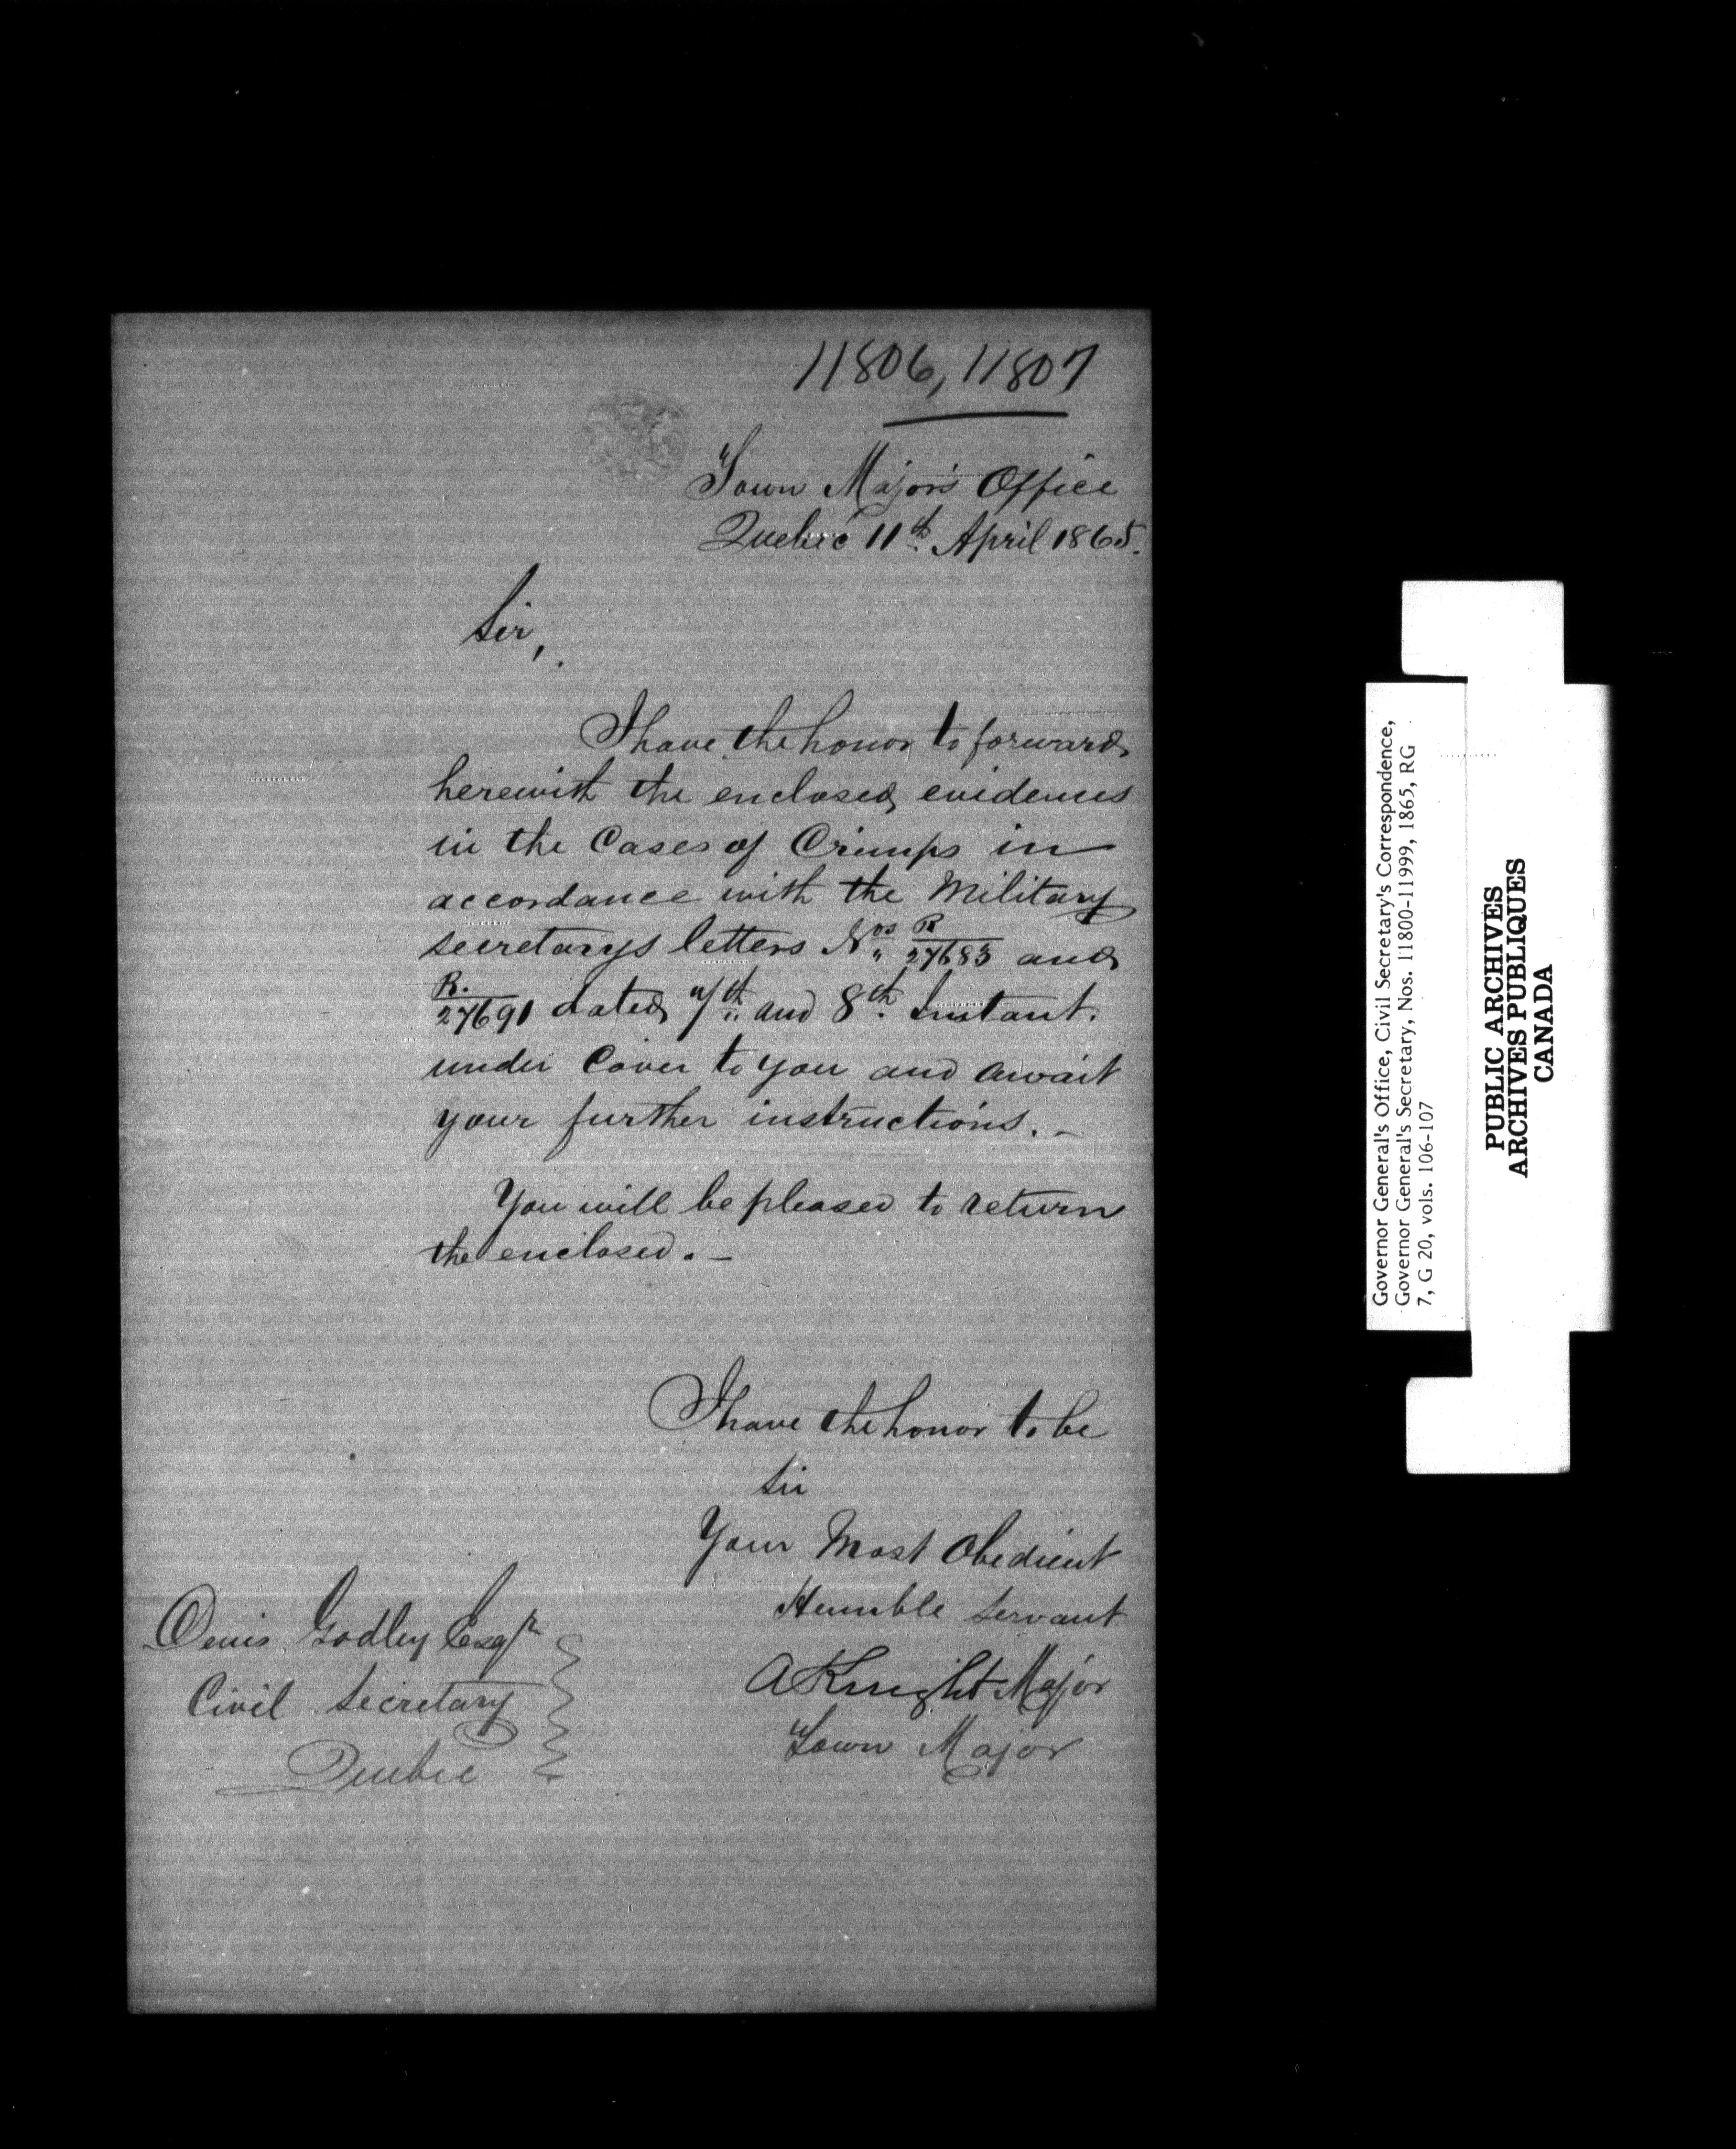 11806, 11807
Town Major's Office
Quebec 11th April 1865.
Sir,
I have the honor to forward
herewith the enclosed evidences
in the Cases of Crimps in
accordance with the Military
secretarys letters Nos R/27683 and
R./27691 dated 7th and 8th Instant.
under Cover to you and await
your further instructions. -
You will be pleased to return
the enclosed. -
I have the honor to be
Sir
Your Most Obedient
Humble Servant
A Knight Major
Town Major
Denis Godley Esqr
Civil Secretary
Quebec
Governor General's Office, Civil Secretary's Correspondence,
Governor General's Secretary, Nos. 11800-11999, 1865, RG
7, G 20, vols. 106-107
PUBLIC ARCHIVES
ARCHIVES PUBLIQUES
CANADA